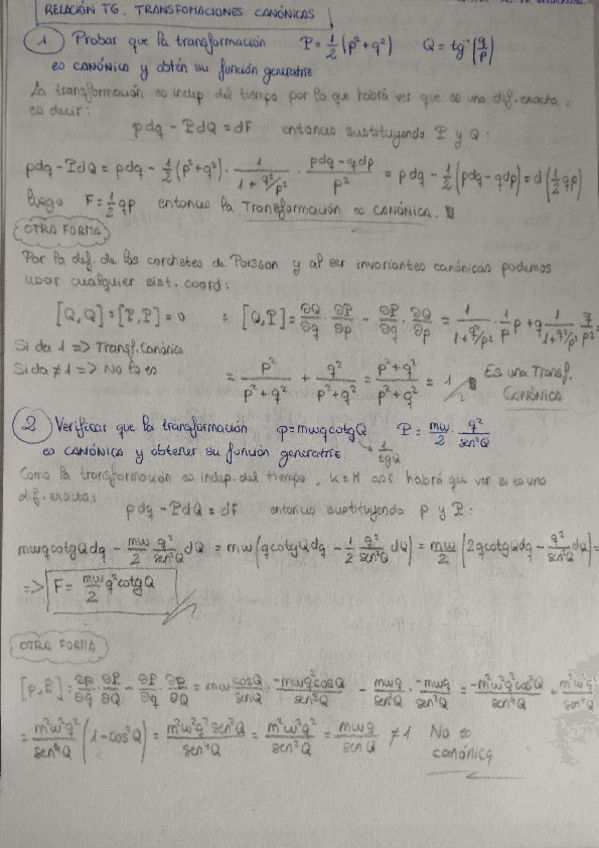 RELACIÓN T6. TRANSFOMACIONES CANÓNICAS
1 Probar que la transformación P = 1/2 (p² + q²) Q = tg⁻¹(q/p)
es CANÓNICA y obtén su función generatriz
La transformación es indep del tiempo por lo que habrá ver que es una dif. exacta,
es decir:
pdq - PdQ = dF entonces sustituyendo P y Q:
pdq - PdQ = pdq - 1/2 (p² + q²) · 1/(1 + q²/p²) · (pdq - qdp)/p² = pdq - 1/2 (pdq - qdp) = d(1/2 qp)
luego F = 1/2 qp entonces la TRANSFORMACIÓN es CANÓNICA.
OTRA FORMA
Por la def. de los corchetes de Poisson y al ser invariantes canónicas podemos
usar cualquier sist. coord:
[Q,Q] = [P,P] = 0 = [Q,P] = ∂Q/∂q · ∂P/∂p - ∂P/∂q · ∂Q/∂p = 1/(1 + q²/p²) · 1/p p + q 1/(1 + q²/p²) q/p²
Si da 1 => Transf. Canónica
Si da ≠ 1 => No lo es
= p²/(p² + q²) + q²/(p² + q²) = (p² + q²)/(p² + q²) = 1 Es una Transf.
CANÓNICA
2 Verificar que la transformación p = mwqcotgQ P = mw/2 · q²/sen²Q
1/tgQ
es CANÓNICA y obtener su función generatriz.
Como la transformación es indep. del tiempo, K = H así habrá que ver si es una
dif. exacta:
pdq - PdQ = dF entonces sustituyendo p y P:
mwqcotgQdq - mw/2 q²/sen²Q dQ = mw(qcotgQdq - 1/2 q²/sen²Q dQ) = mw/2 (2qcotgQdq - q²/sen²Q dQ) =
=> F = mw/2 q²cotgQ
OTRA FORMA
[p,P] = ∂p/∂q · ∂P/∂Q - ∂P/∂q · ∂p/∂Q = mw cosQ/senQ · -mwq²cosQ/sen³Q - mwq/sen²Q · -mwq/sen²Q = -m²w²q²cos²Q/sen⁴Q + m²w²q²/sen⁴Q
= m²w²q²/sen⁴Q (1 - cos²Q) = m²w²q² sen²Q/sen⁴Q = m²w²q²/sen²Q = mwq/senQ ≠ 1 No es
canónica